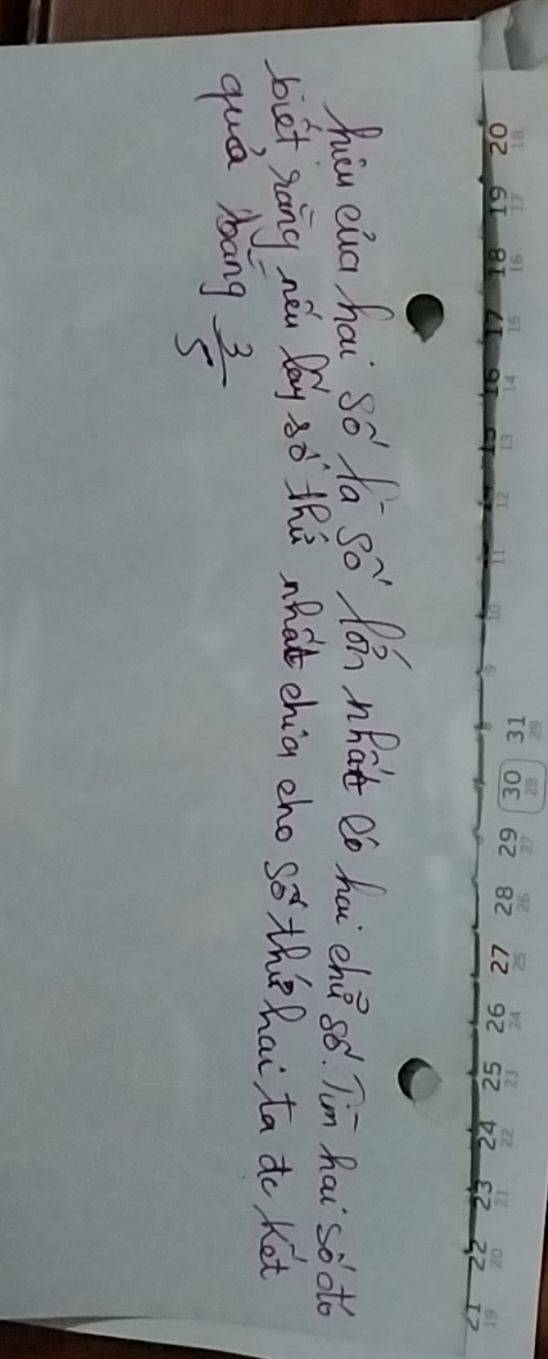 hiệu của hai số là số lớn nhất có hai chữ số. Tìm hai số đó
biết rằng nếu lấy số thứ nhất chia cho số thứ hai ta đc kết
quả bằng 3/5
20 19 18 17 16 15 14 13 12 11 10 9 8 31 30 29 28 27 26 25 24 23 22 21
18 17 16 15 14 13 12 11 10 9 8 29 28 27 26 25 24 23 22 21 20 19